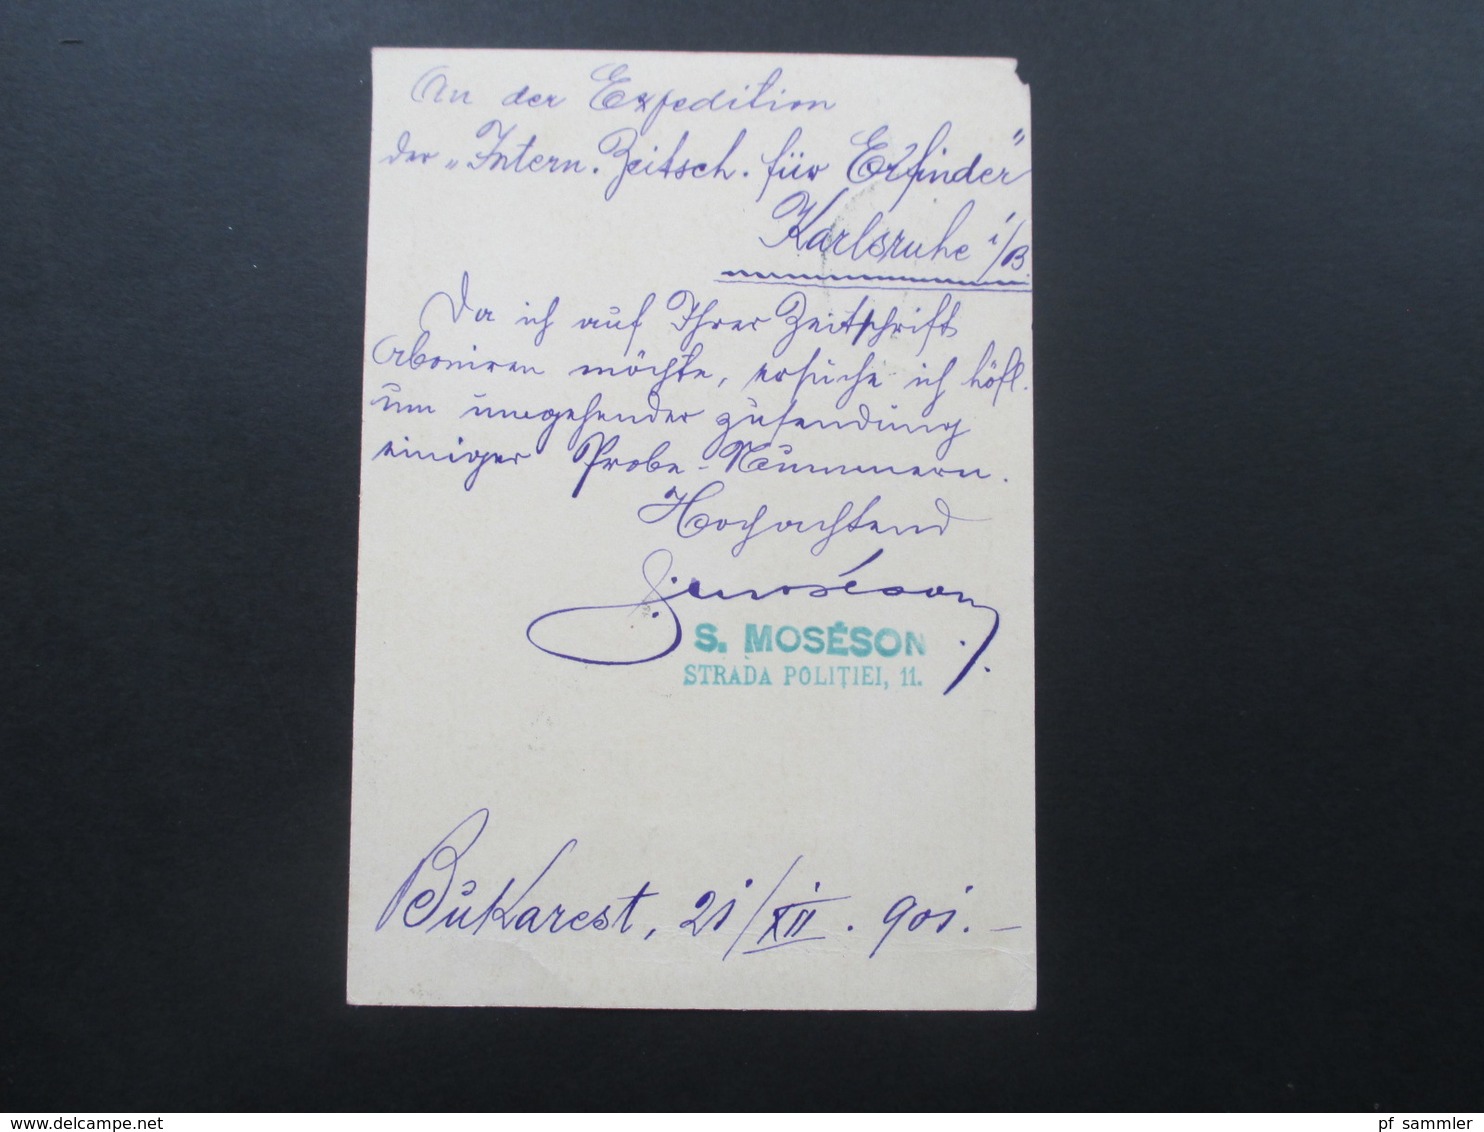 An der Expedition
der „Intern. Zeitsch. für Erfinder"
Karlsruhe i/B.
Da ich auf Ihrer Zeitschrift
Aboniren möchte, ersuche ich höfl.
um umgehender zusendung
einiger Probe-Nummern.
Hochachtend
S. Moséson
S. MOSÉSON
STRADA POLIŢIEI, 11.
Bukarest, 21/XII. 901.–
www.delcampe.net
pf_sammler